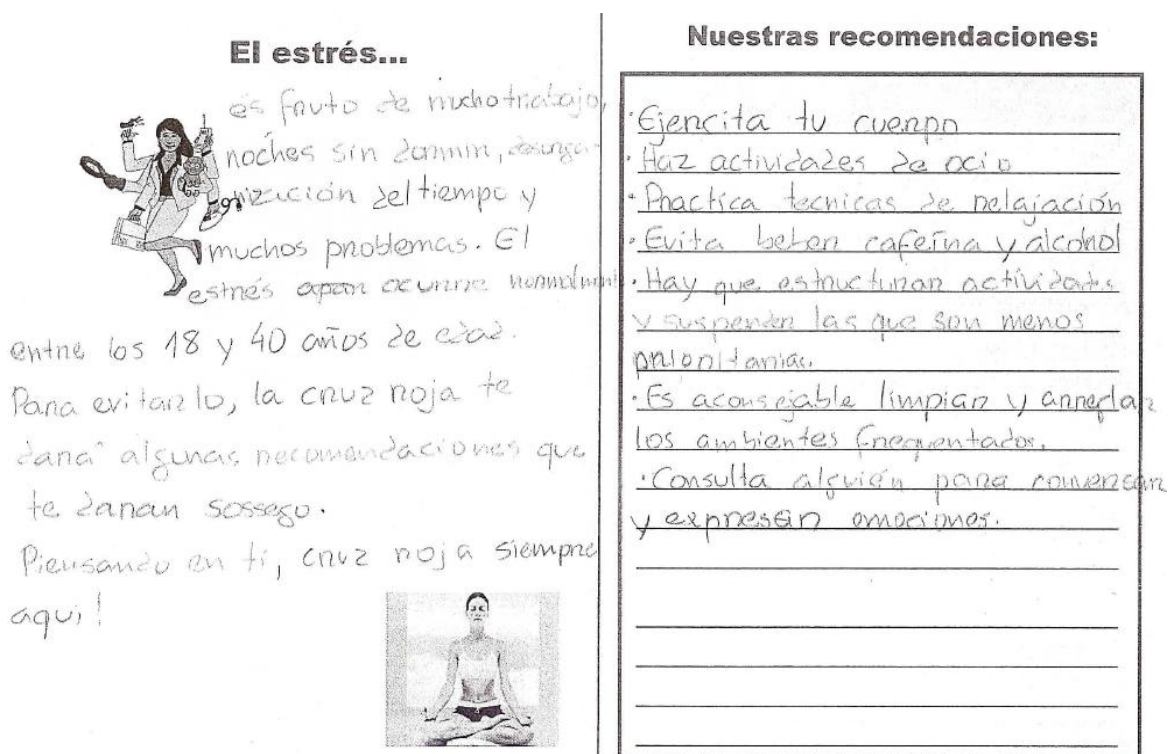 El estrés...
es fruto de mucho trabajo,
noches sin dormir, desorga-
nización del tiempo y
muchos problemas. El
estrés ocurre normalmente
entre los 18 y 40 años de edad.
Para evitarlo, la cruz roja te
dará algunas recomendaciones que
te daran sossego.
Piensando en ti, cruz roja siempre
aqui!
Nuestras recomendaciones:
· Ejercita tu cuerpo
· Haz actividades de ocio
· Practica tecnicas de relajación
· Evita beber cafeína y alcohol
· Hay que estructurar actividades
y suspender las que son menos
prioritarias.
· Es aconsejable limpiar y arreglar
los ambientes frequentados.
· Consulta alguién para conversar
y expresar emociones.